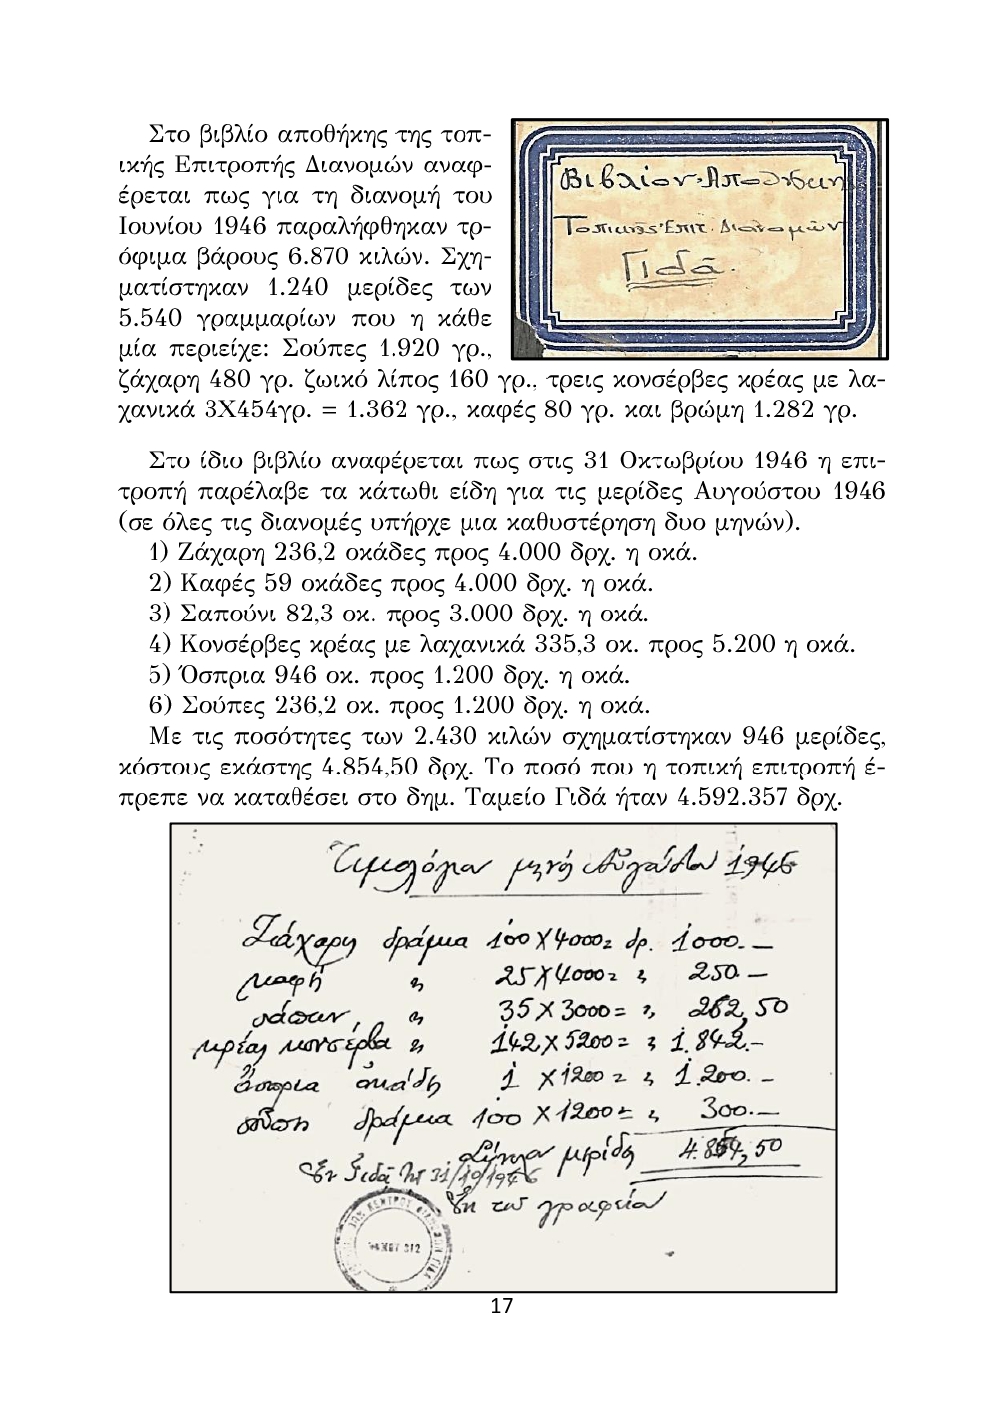 Στο βιβλίο αποθήκης της τοπ-
ικής Επιτροπής Διανομών αναφ-
έρεται πως για τη διανομή του
Ιουνίου 1946 παραλήφθηκαν τρ-
όφιμα βάρους 6.870 κιλών. Σχη-
ματίστηκαν 1.240 μερίδες των
5.540 γραμμαρίων που η κάθε
μία περιείχε: Σούπες 1.920 γρ.,
ζάχαρη 480 γρ. ζωικό λίπος 160 γρ., τρεις κονσέρβες κρέας με λα-
χανικά 3Χ454γρ. = 1.362 γρ., καφές 80 γρ. και βρώμη 1.282 γρ.
Βιβλίον Αποθήκης
Τοπικής Επιτ. Διανομών
Γιδά.
Στο ίδιο βιβλίο αναφέρεται πως στις 31 Οκτωβρίου 1946 η επι-
τροπή παρέλαβε τα κάτωθι είδη για τις μερίδες Αυγούστου 1946
(σε όλες τις διανομές υπήρχε μια καθυστέρηση δυο μηνών).
1) Ζάχαρη 236,2 οκάδες προς 4.000 δρχ. η οκά.
2) Καφές 59 οκάδες προς 4.000 δρχ. η οκά.
3) Σαπούνι 82,3 οκ. προς 3.000 δρχ. η οκά.
4) Κονσέρβες κρέας με λαχανικά 335,3 οκ. προς 5.200 η οκά.
5) Όσπρια 946 οκ. προς 1.200 δρχ. η οκά.
6) Σούπες 236,2 οκ. προς 1.200 δρχ. η οκά.
Με τις ποσότητες των 2.430 κιλών σχηματίστηκαν 946 μερίδες,
κόστους εκάστης 4.854,50 δρχ. Το ποσό που η τοπική επιτροπή έ-
πρεπε να καταθέσει στο δημ. Ταμείο Γιδά ήταν 4.592.357 δρχ.
Τιμολόγιον μηνός Αὐγούστου 1946
Ζάχαρη δράμια 100 Χ 4000= δρ. 1000.—
καφή " 25 Χ 4000= " 250.—
σάπων, " 35 Χ 3000= " 262,50
κρέας κονσέρβα " 142 Χ 5200= " 1.842.-
ὄσπρια ὀκάδη 1 Χ 1200= " 1.200.-
σούπη δράμια 100 Χ 1200= " 300.—
Σύνολον μερίδος 4.854,50
Ἐν Γιδᾶ τῇ 31/10/1946
Ἐκ τοῦ γραφείου
17